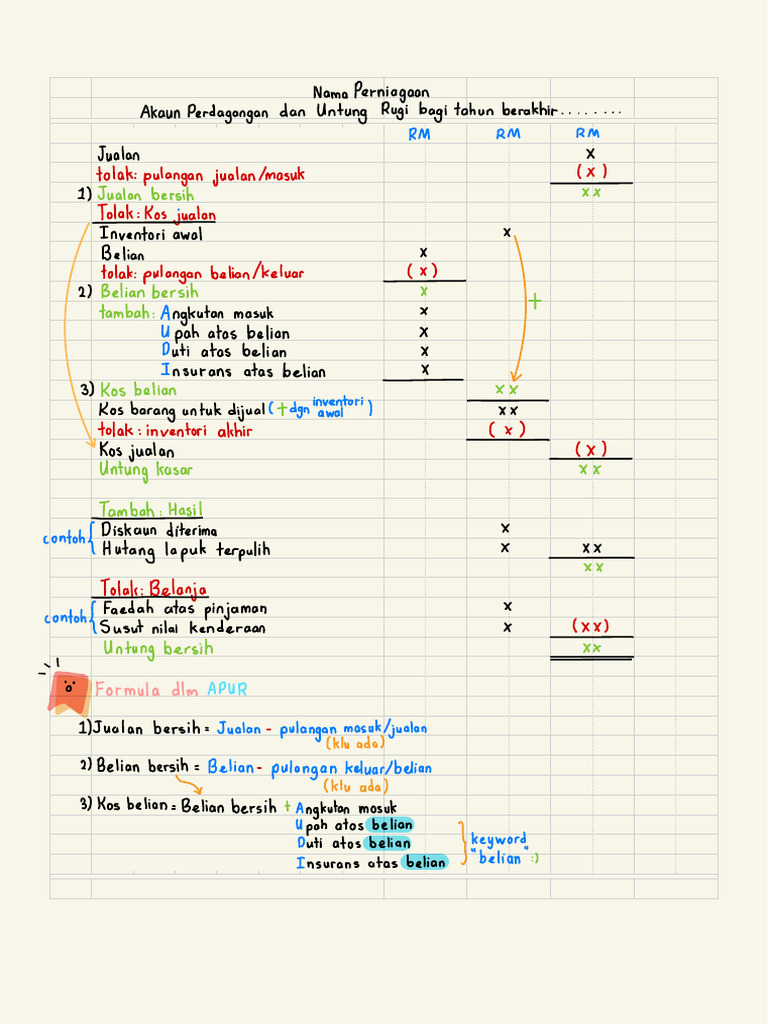 Nama Perniagaan
Akaun Perdagangan dan Untung Rugi bagi tahun berakhir........
RM RM RM
Jualan x
tolak: pulangan jualan/masuk (x)
1) Jualan bersih xx
Tolak: Kos jualan
Inventori awal x
Belian x
tolak: pulangan belian/keluar (x)
2) Belian bersih x
tambah: Angkutan masuk x
Upah atas belian x
Duti atas belian x
Insurans atas belian x
+
3) Kos belian xx
Kos barang untuk dijual (+ dgn inventori awal) xx
tolak: inventori akhir (x)
Kos jualan (x)
Untung kasar xx
Tambah: Hasil
contoh { Diskaun diterima x
Hutang lapuk terpulih x xx
xx
Tolak: Belanja
contoh { Faedah atas pinjaman x
Susut nilai kenderaan x (xx)
Untung bersih xx
Formula dlm APUR
1) Jualan bersih = Jualan - pulangan masuk/jualan
(klu ada)
2) Belian bersih = Belian - pulangan keluar/belian
(klu ada)
3) Kos belian = Belian bersih + Angkutan masuk
Upah atas belian
Duti atas belian
Insurans atas belian
} keyword
"belian" :)